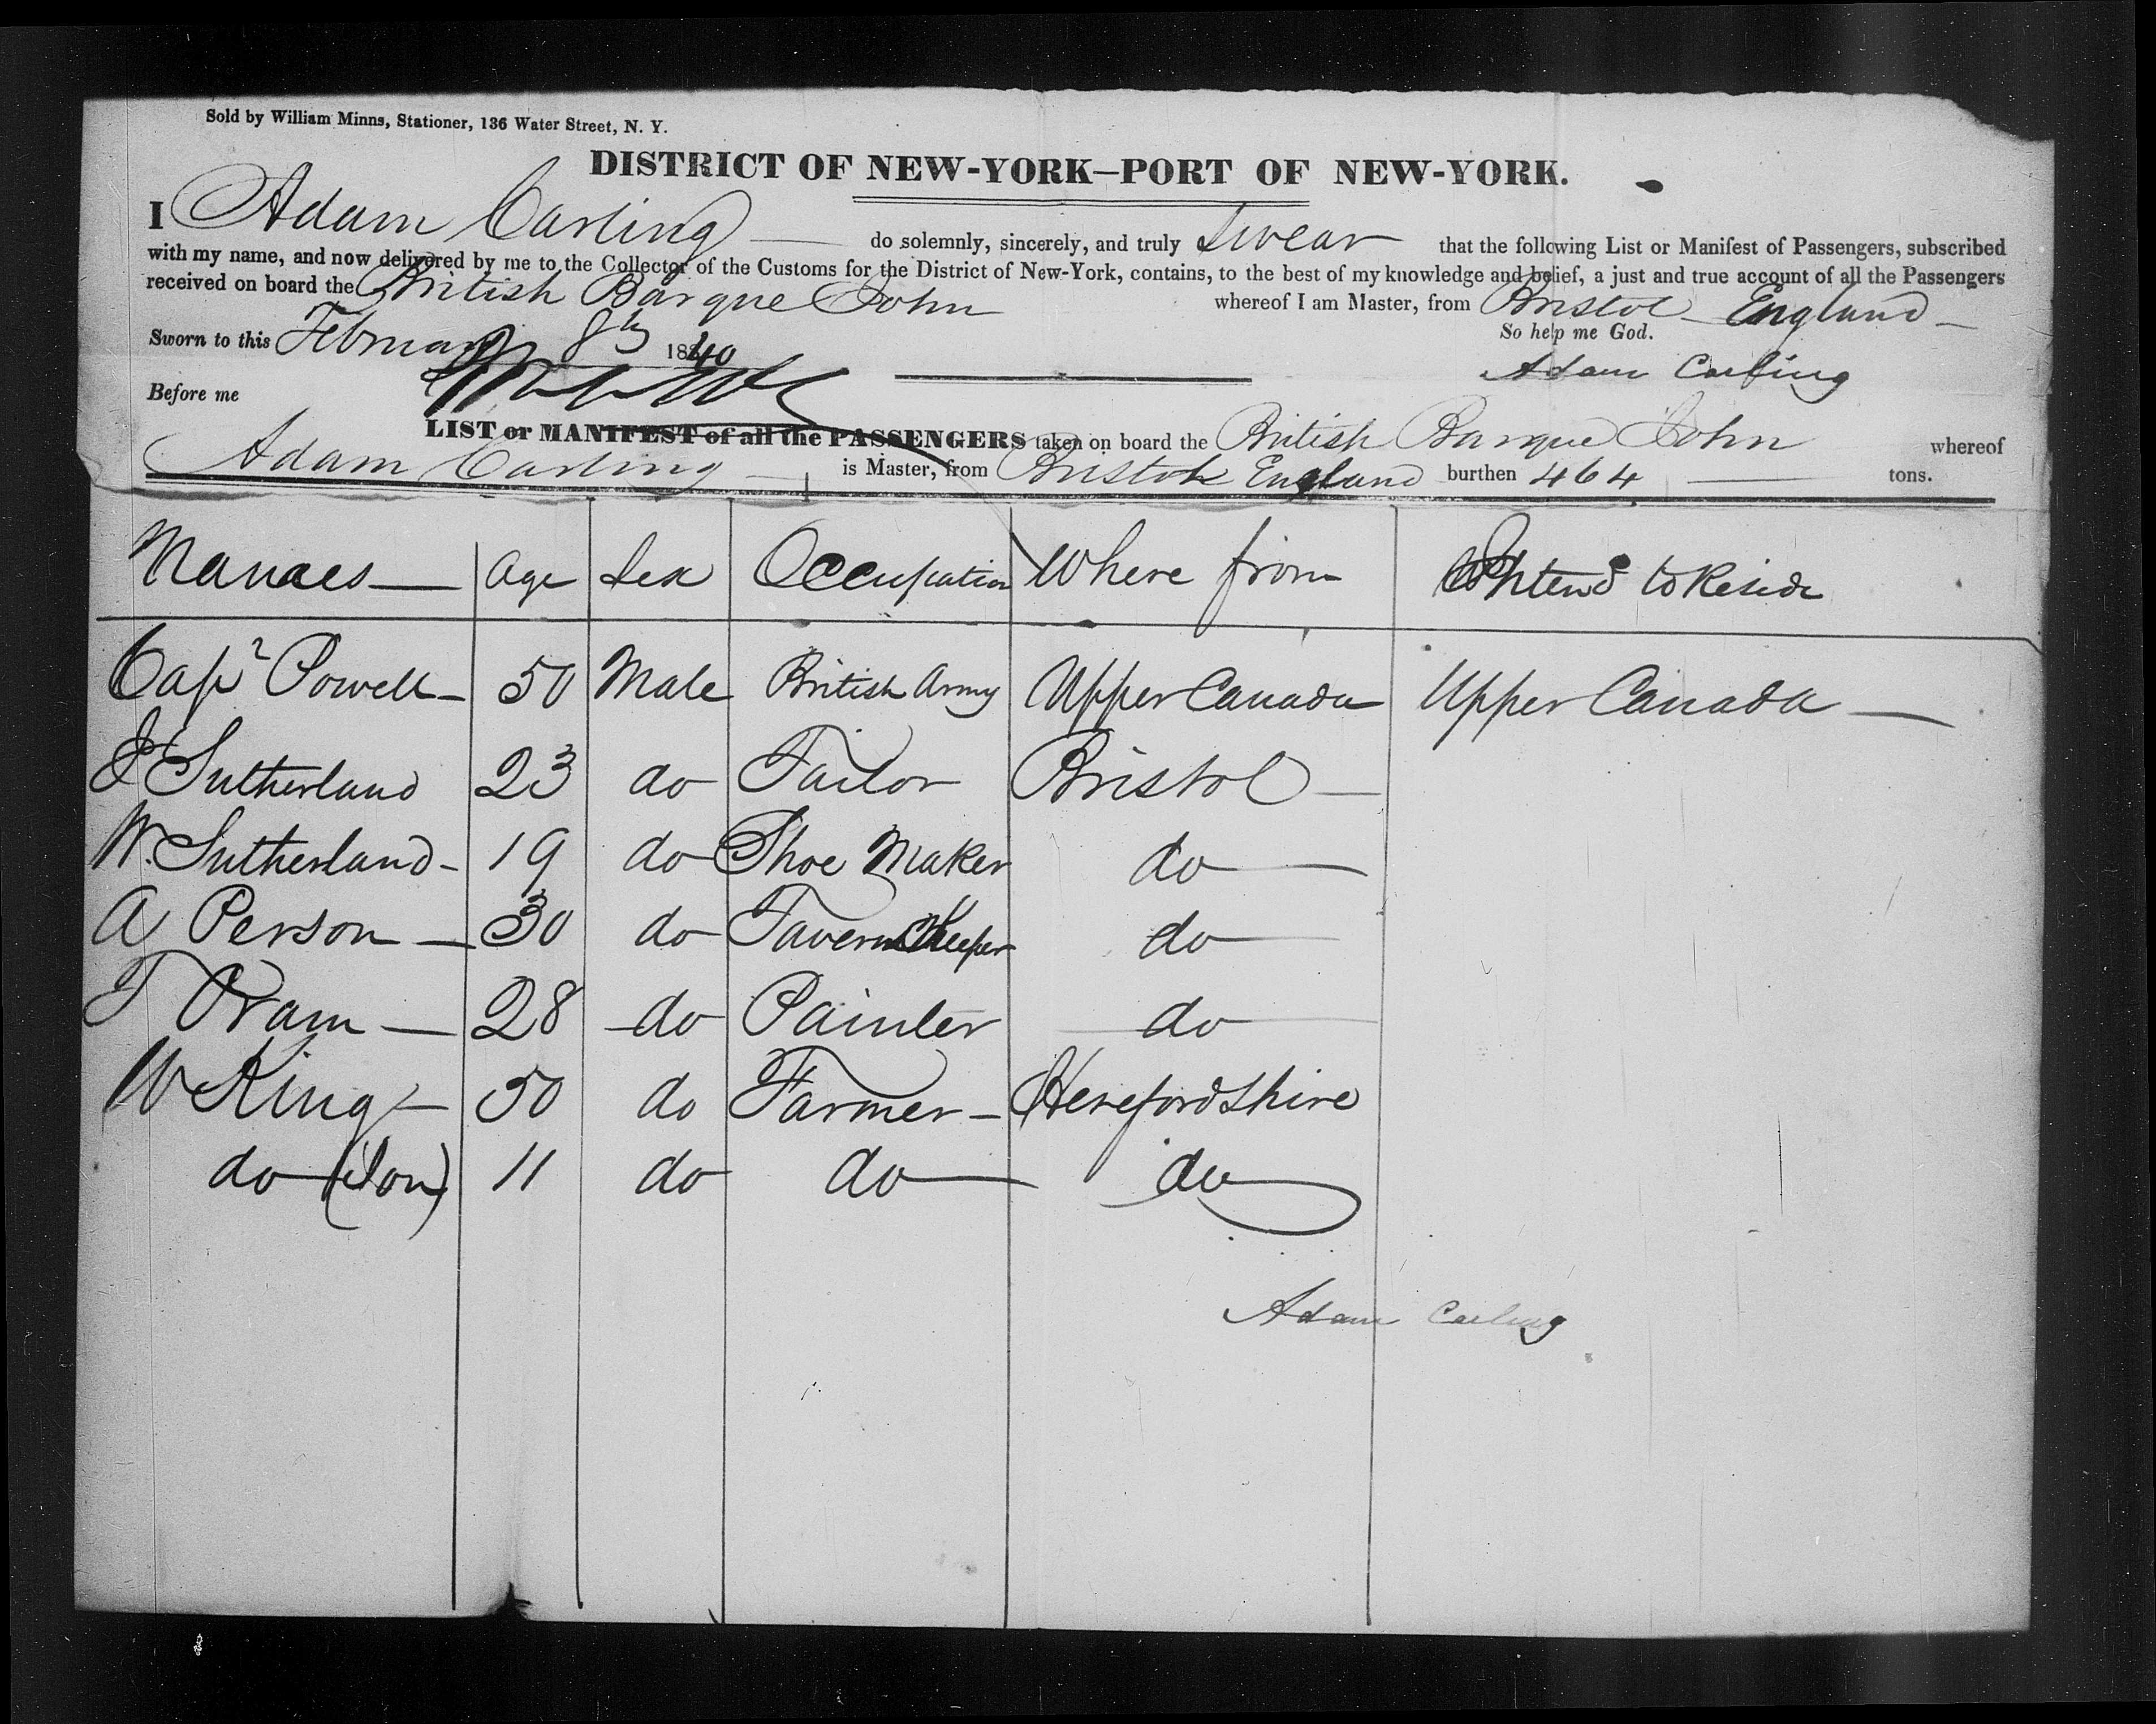 Sold by William Minns, Stationer, 136 Water Street, N. Y.
DISTRICT OF NEW-YORK—PORT OF NEW-YORK.
I Adam Carling do solemnly, sincerely, and truly Swear that the following List or Manifest of Passengers, subscribed
with my name, and now delivered by me to the Collector of the Customs for the District of New-York, contains, to the best of my knowledge and belief, a just and true account of all the Passengers
received on board the British Barque John whereof I am Master, from Bristol England
So help me God.
Sworn to this February 8th 1840
Adam Carling
Before me
LIST or MANIFEST of all the PASSENGERS taken on board the British Barque John whereof
Adam Carling is Master, from Bristol England burthen 464 tons.
Names Age Sex Occupation Where from Intend to Reside
Capt Powell 50 Male British Army Upper Canada Upper Canada
J Sutherland 23 do Tailor Bristol
W. Sutherland 19 do Shoe Maker do
A Person 30 do Tavern Keeper do
T Oram 28 do Painter do
W King 50 do Farmer Herefordshire
do (Son) 11 do do do
Adam Carling